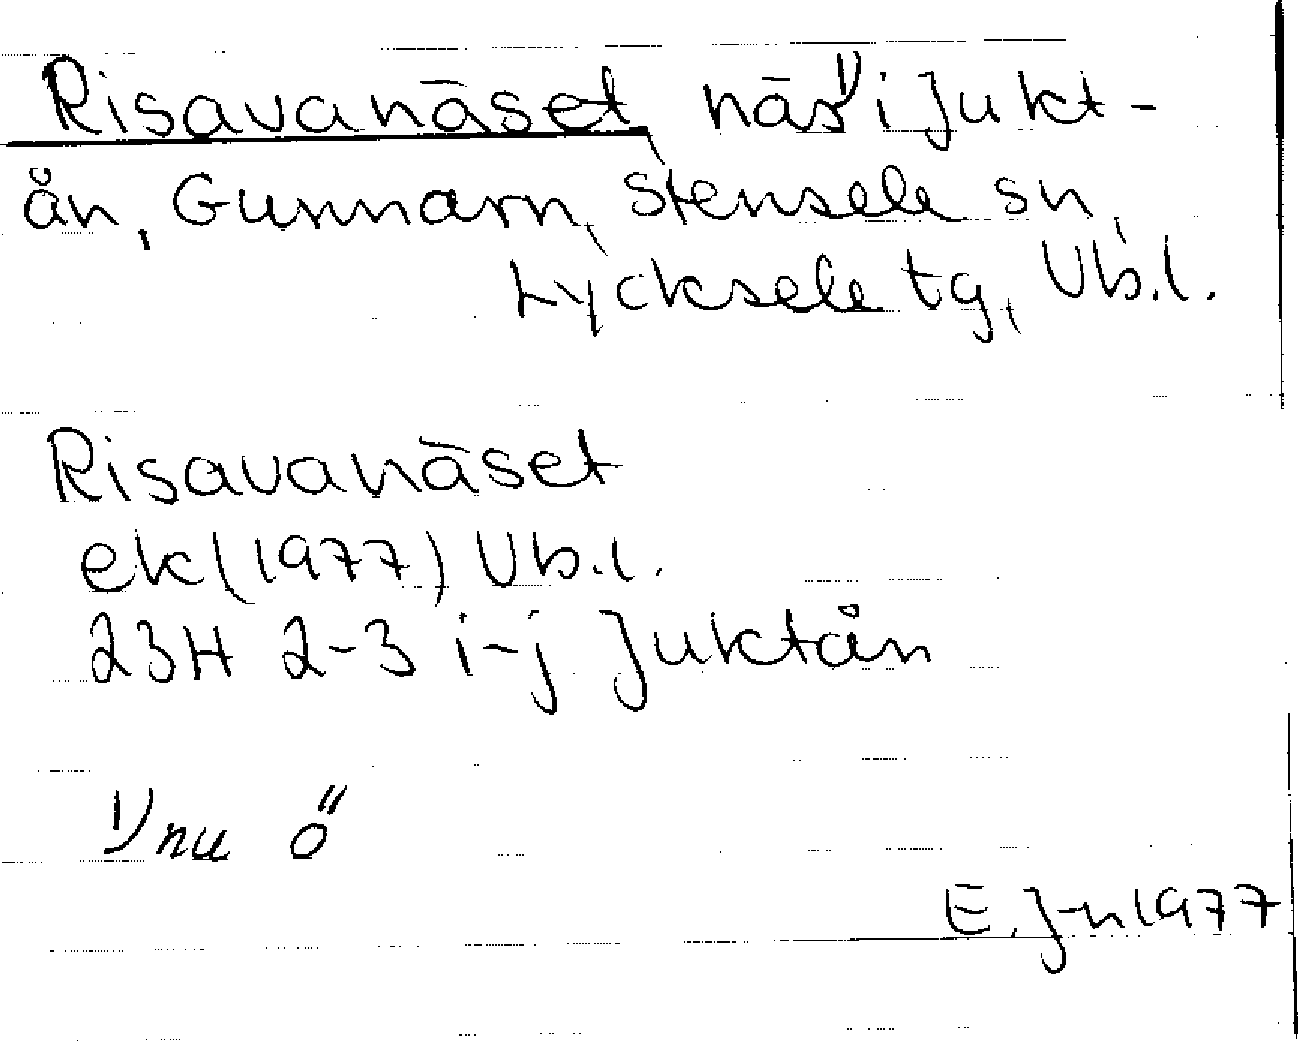 Risavanäset näs¹⁾ i Jukt-
ån, Gunnarn, Stensele sn,
Lycksele tg, Vb.l.
Risavanäset
ek (1977) Vb.l.
23H 2-3 i-j Juktån
¹⁾ nu ö
E. J-n 1977